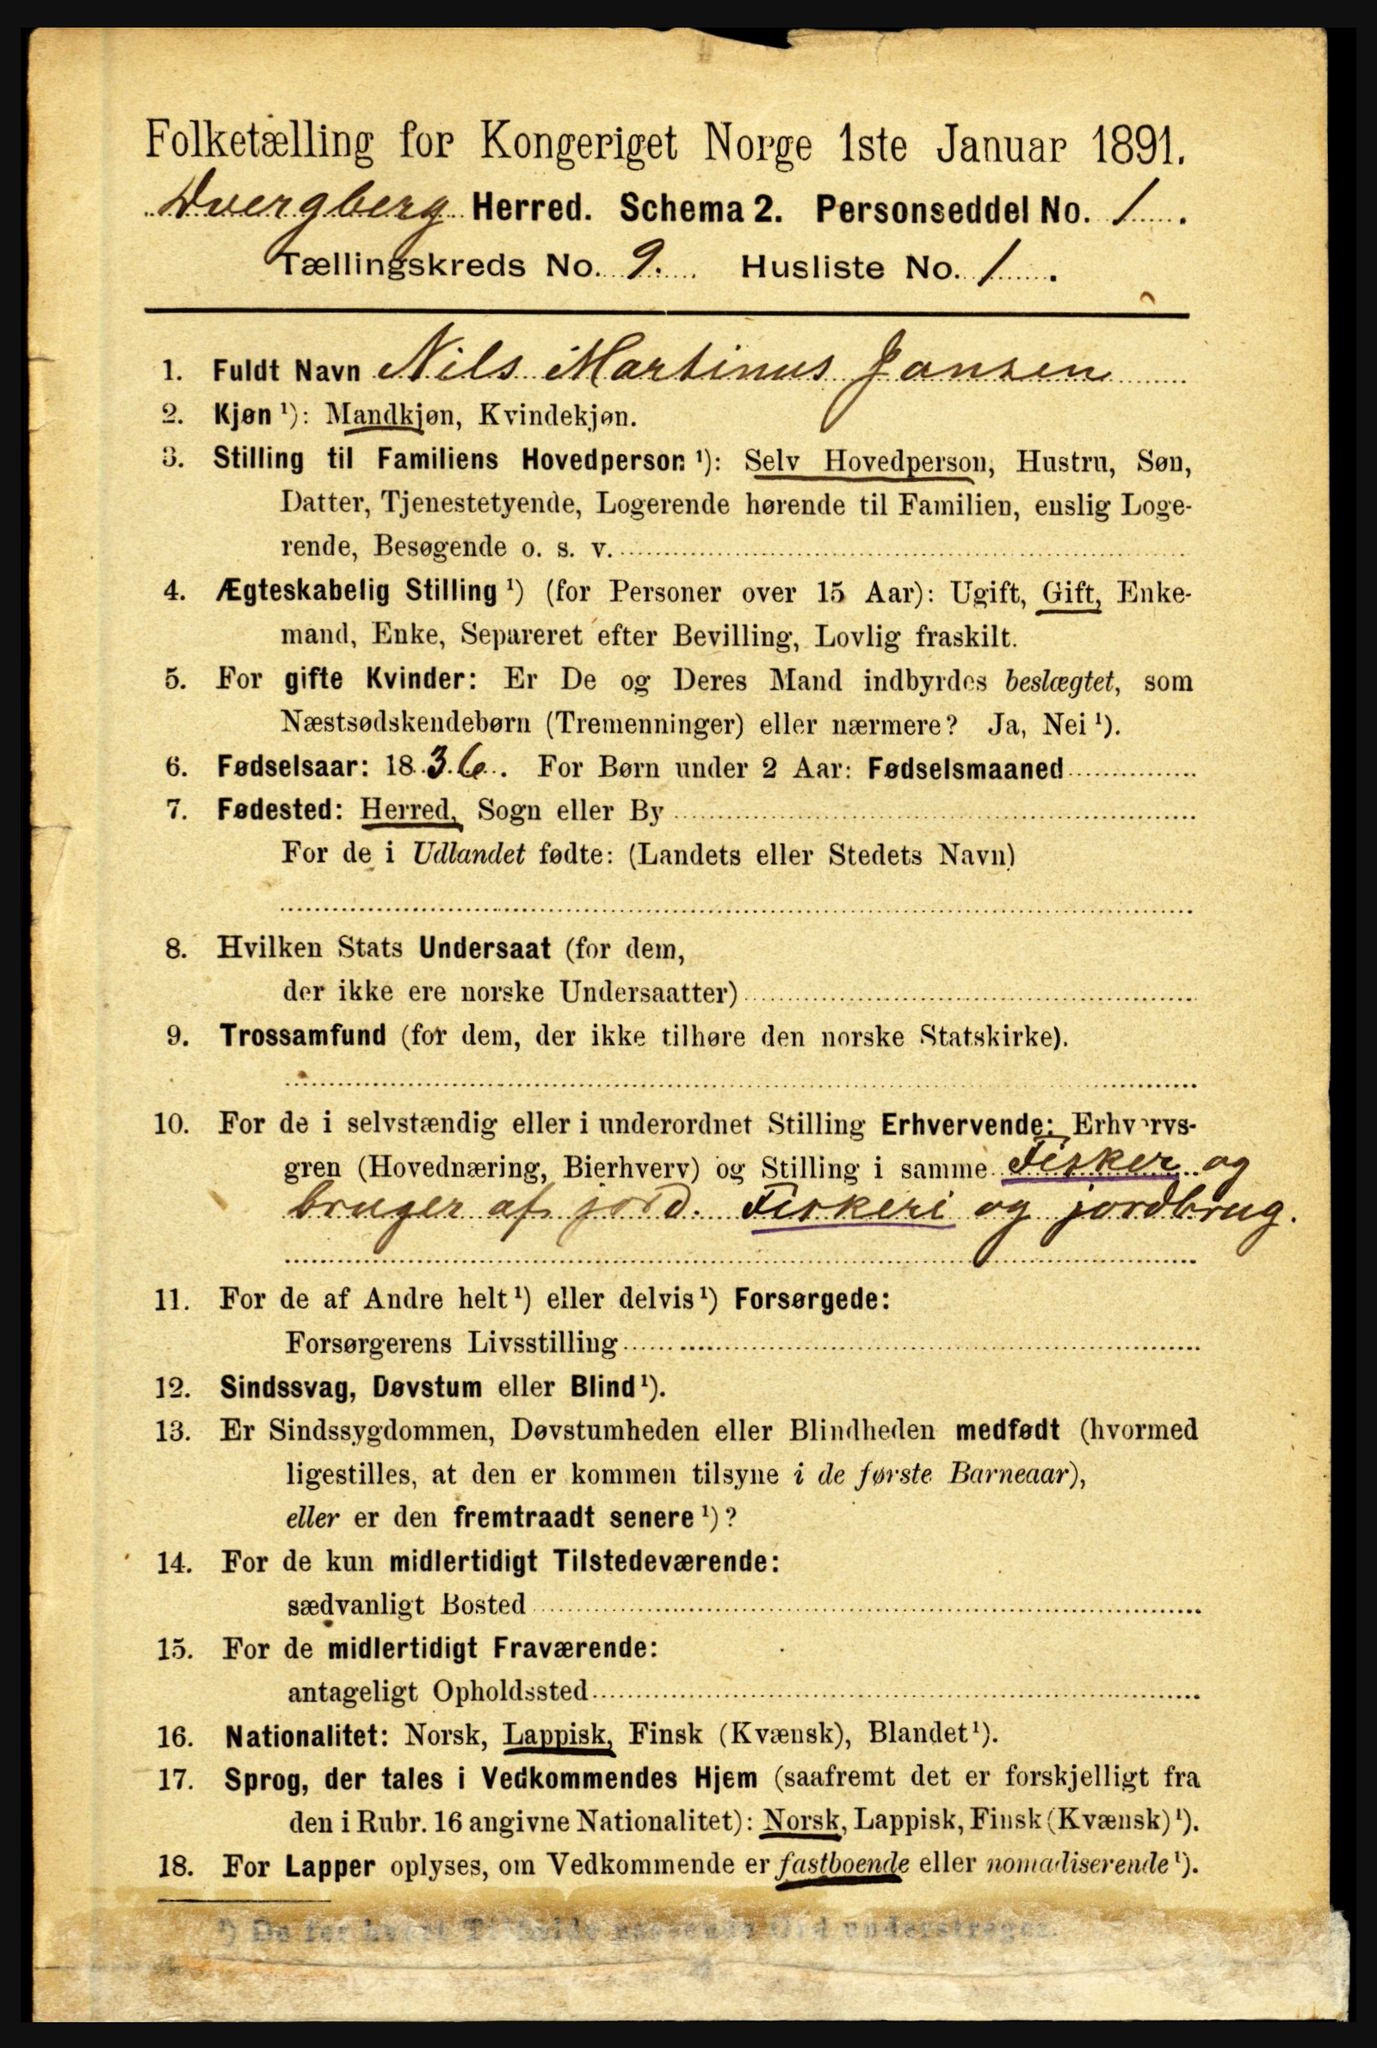 Folketælling for Kongeriget Norge 1ste Januar 1891.
Dvergberg Herred. Schema 2. Personseddel No. 1.
Tællingskreds No. 9. Husliste No. 1.
1. Fuldt Navn Nils Martinus Jansen
2. Kjøn¹): Mandkjøn, Kvindekjøn.
3. Stilling til Familiens Hovedperson¹): Selv Hovedperson, Hustru, Søn,
Datter, Tjenestetyende, Logerende hørende til Familien, enslig Loge-
rende, Besøgende o. s. v.
4. Ægteskabelig Stilling¹) (for Personer over 15 Aar): Ugift, Gift, Enke-
mand, Enke, Separeret efter Bevilling, Lovlig fraskilt.
5. For gifte Kvinder: Er De og Deres Mand indbyrdes beslægtet, som
Næstsødskendebørn (Tremenninger) eller nærmere? Ja, Nei¹).
6. Fødselsaar: 1836. For Børn under 2 Aar: Fødselsmaaned
7. Fødested: Herred, Sogn eller By
For de i Udlandet fødte: (Landets eller Stedets Navn)
8. Hvilken Stats Undersaat (for dem,
der ikke ere norske Undersaatter)
9. Trossamfund (for dem, der ikke tilhøre den norske Statskirke).
10. For de i selvstændig eller i underordnet Stilling Erhvervende: Erhvervs-
gren (Hovednæring, Bierhverv) og Stilling i samme Fisker og
bruger af jord. Fiskeri og jordbrug.
11. For de af Andre helt¹) eller delvis¹) Forsørgede:
Forsørgerens Livsstilling
12. Sindssvag, Døvstum eller Blind¹).
13. Er Sindssygdommen, Døvstumheden eller Blindheden medfødt (hvormed
ligestilles, at den er kommen tilsyne i de første Barneaar),
eller er den fremtraadt senere¹)?
14. For de kun midlertidigt Tilstedeværende:
sædvanligt Bosted
15. For de midlertidigt Fraværende:
antageligt Opholdssted
16. Nationalitet: Norsk, Lappisk, Finsk (Kvænsk), Blandet¹).
17. Sprog, der tales i Vedkommendes Hjem (saafremt det er forskjelligt fra
den i Rubr. 16 angivne Nationalitet): Norsk, Lappisk, Finsk (Kvænsk)¹).
18. For Lapper oplyses, om Vedkommende er fastboende eller nomadiserende¹).
¹) De for hvert Tilfælde passende Ord understreges.